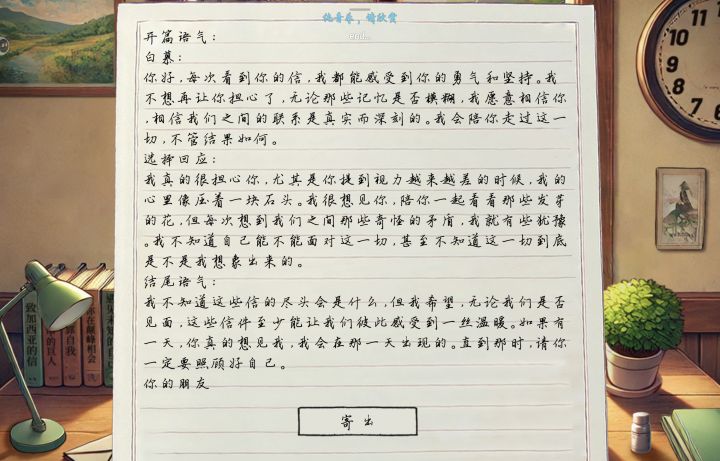 纯音乐，请欣赏
end...
开篇语气：
白慕：
你好，每次看到你的信，我都能感受到你的勇气和坚持。我
不想再让你担心了，无论那些记忆是否模糊，我愿意相信你
，相信我们之间的联系是真实而深刻的。我会陪你走过这一
切，不管结果如何。
选择回应：
我真的很担心你，尤其是你提到视力越来越差的时候，我的
心里像压着一块石头。我很想见你，陪你一起看看那些发芽
的花，但每次想到我们之间那些奇怪的矛盾，我就有些犹豫
。我不知道自己能不能面对这一切，甚至不知道这一切到底
是不是我想象出来的。
结尾语气：
我不知道这些信的尽头会是什么，但我希望，无论我们是否
见面，这些信件至少能让我们彼此感受到一丝温暖。如果有
一天，你真的想见我，我会在那一天出现的。直到那时，请你
一定要照顾好自己。
你的朋友
寄出
致加西亚的信
的巨人
自我
在巅峰相会
10
11
12
1
2
3
4
5